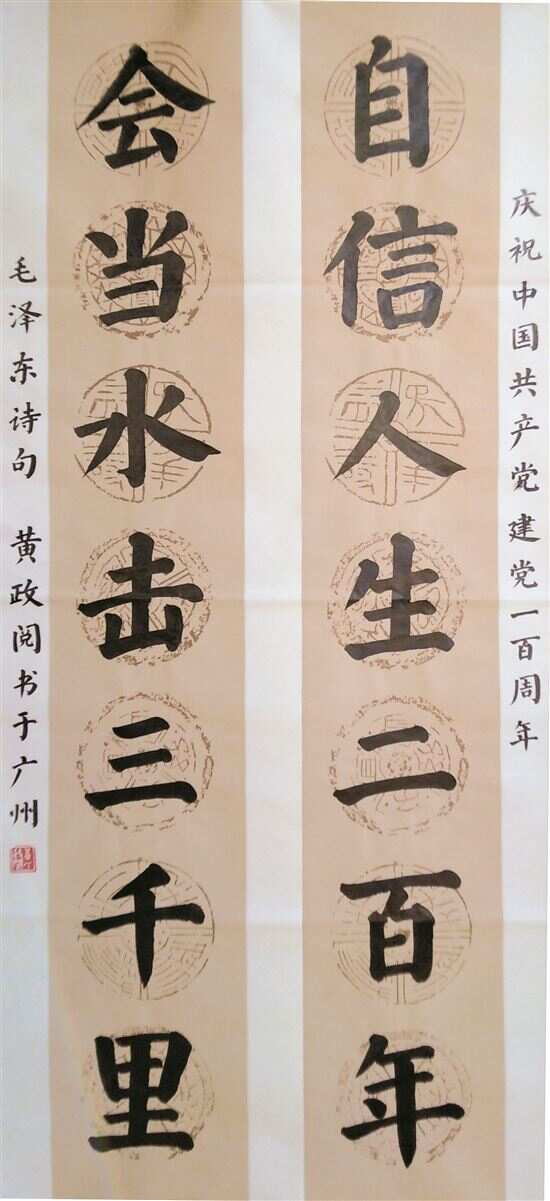 庆祝中国共产党建党一百周年
自信人生二百年
会当水击三千里
毛泽东诗句 黄政阅书于广州